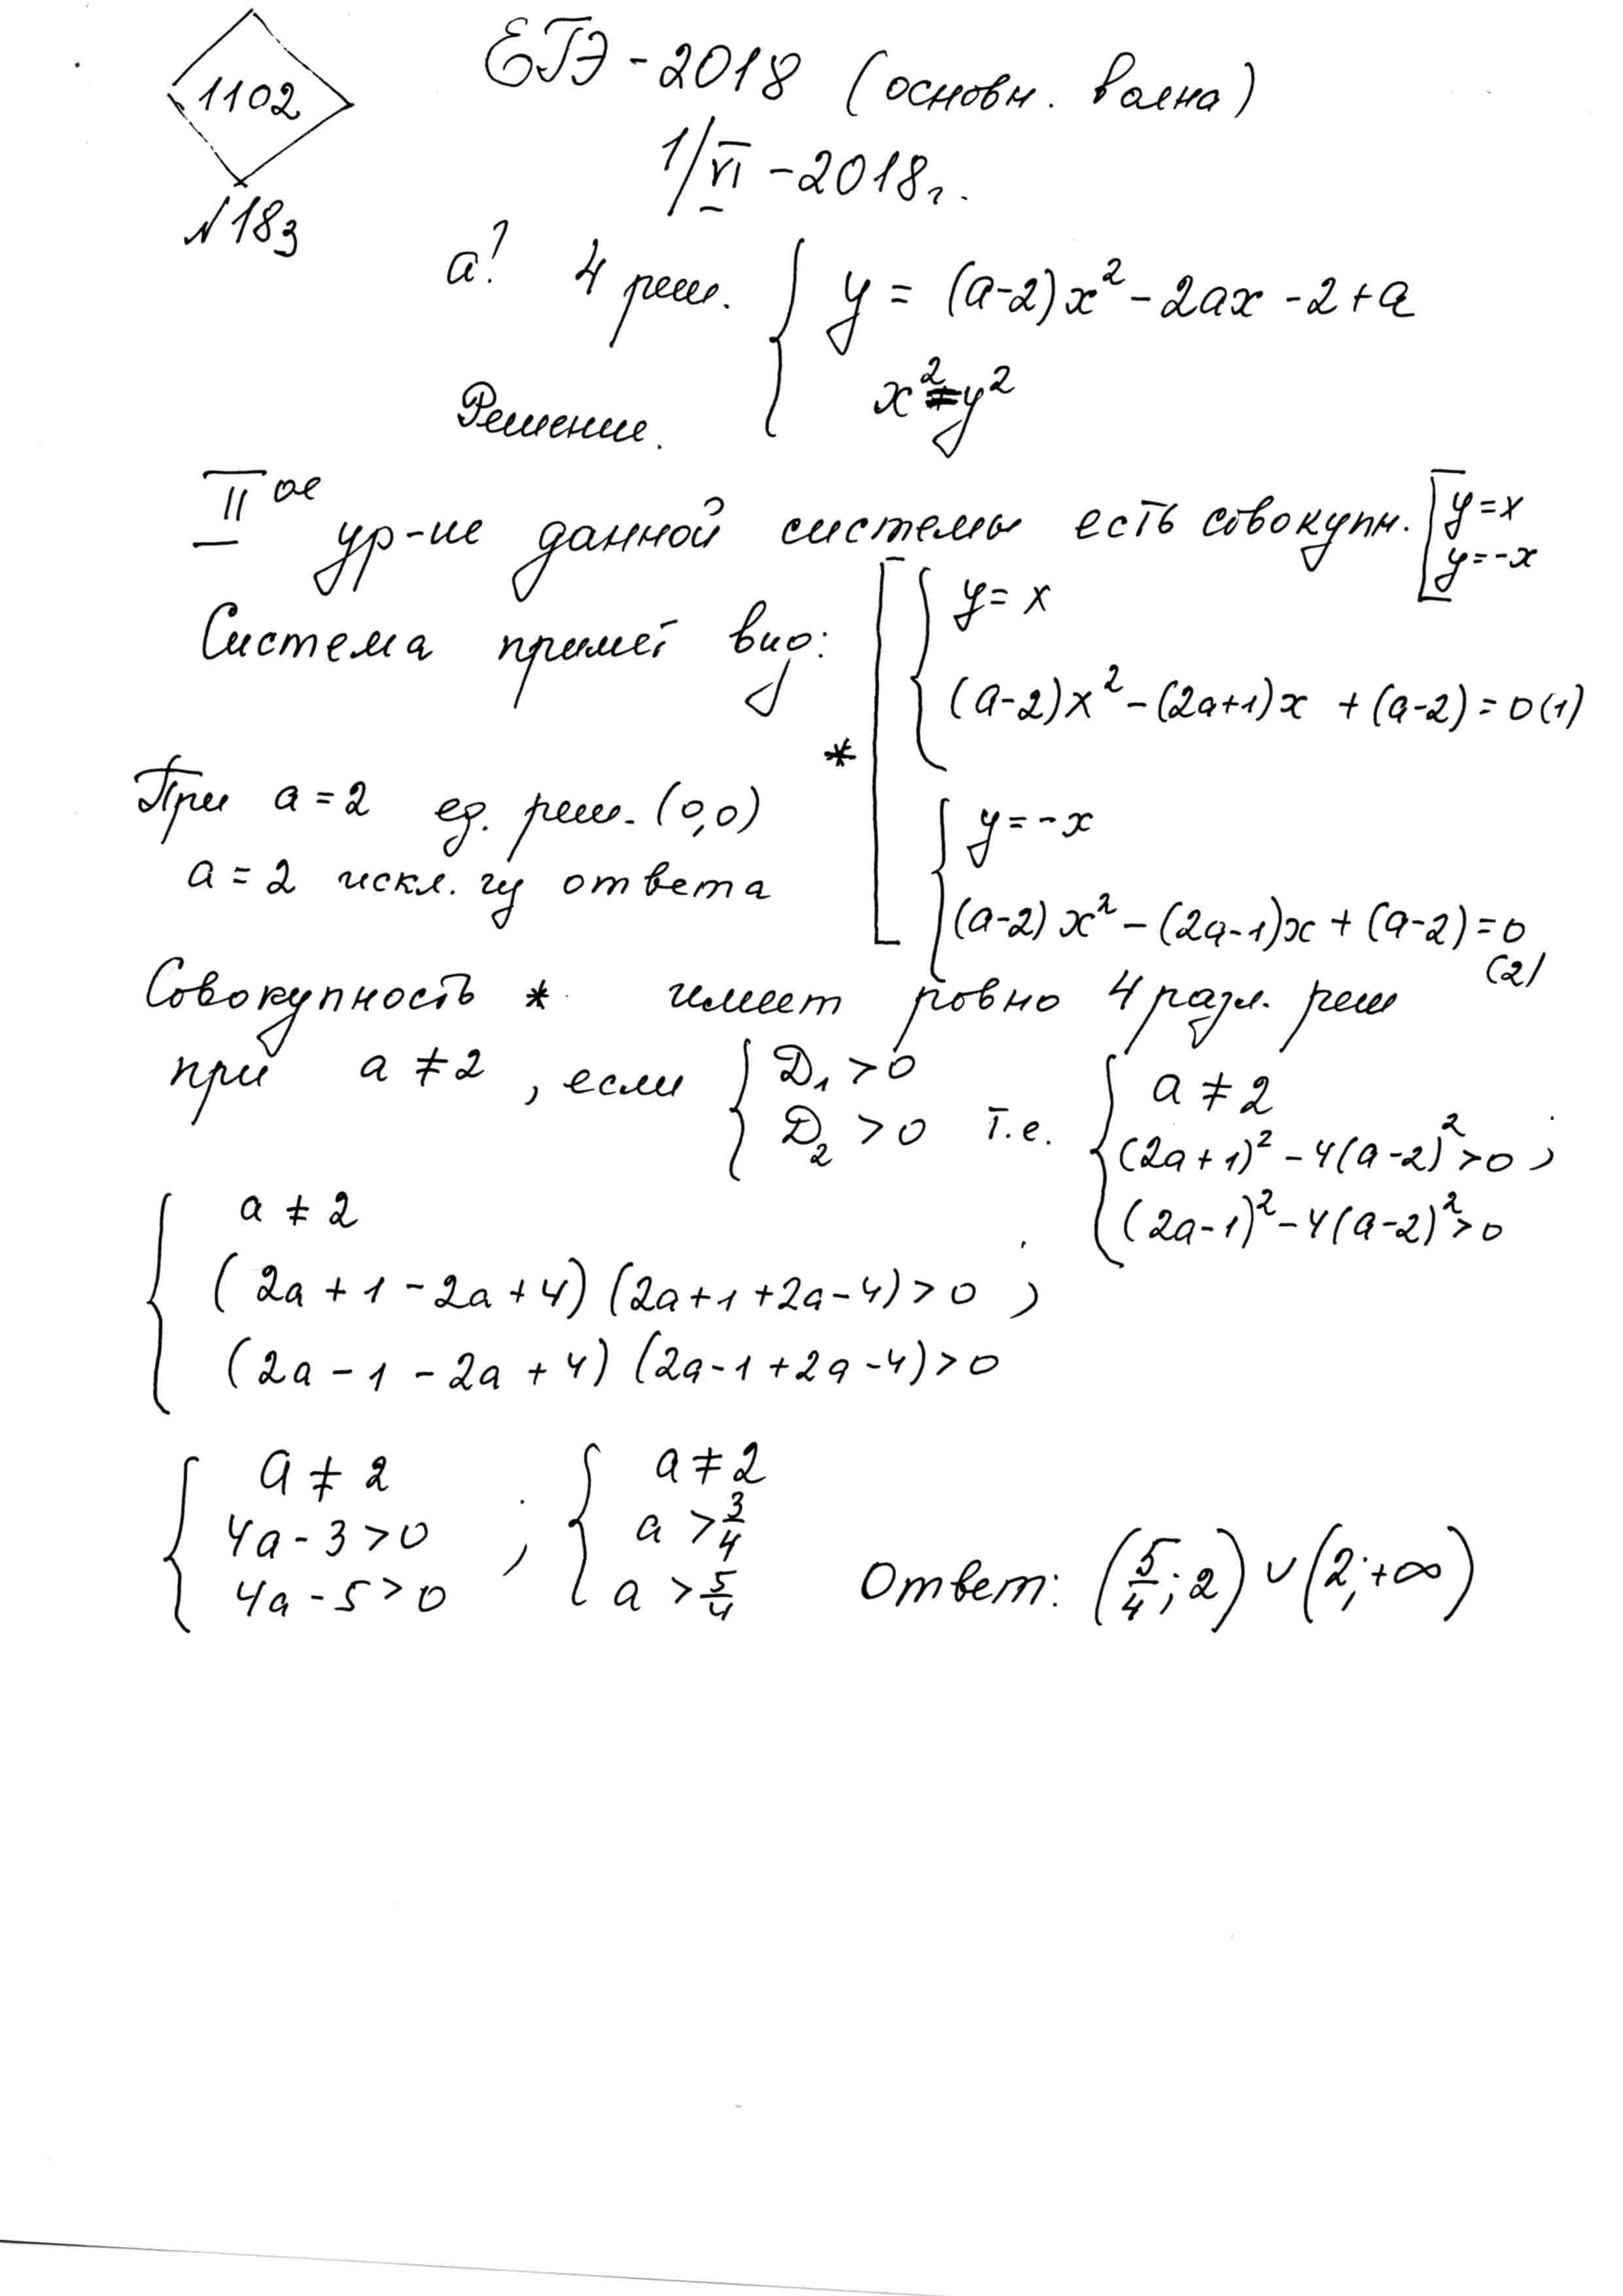 1102
ЕГЭ - 2018 (основн. волна)
1/VI - 2018г.
№183
а? 4 реш. { y = (a-2)x² - 2ax - 2 + a
x² = y²
Решение.
II ое ур-ие данной системы есть совокупн. [ y = x
y = -x
Система примет вид: [ { y = x
(a-2)x² - (2a+1)x + (a-2) = 0 (1)
*
При a = 2 ед. реш. (0,0)
{ y = -x
a = 2 искл. из ответа
(a-2)x² - (2a-1)x + (a-2) = 0
(2)
Совокупность * имеет ровно 4 разл. реш
при a ≠ 2, если { Д₁ > 0
Д₂ > 0 т.е. { a ≠ 2
(2a+1)² - 4(a-2)² > 0 ;
(2a-1)² - 4(a-2)² > 0
{ a ≠ 2
(2a + 1 - 2a + 4) (2a + 1 + 2a - 4) > 0 ;
(2a - 1 - 2a + 4) (2a - 1 + 2a - 4) > 0
{ a ≠ 2
4a - 3 > 0 ;
4a - 5 > 0
{ a ≠ 2
a > 3/4
a > 5/4
Ответ: (5/4; 2) ∪ (2; +∞)